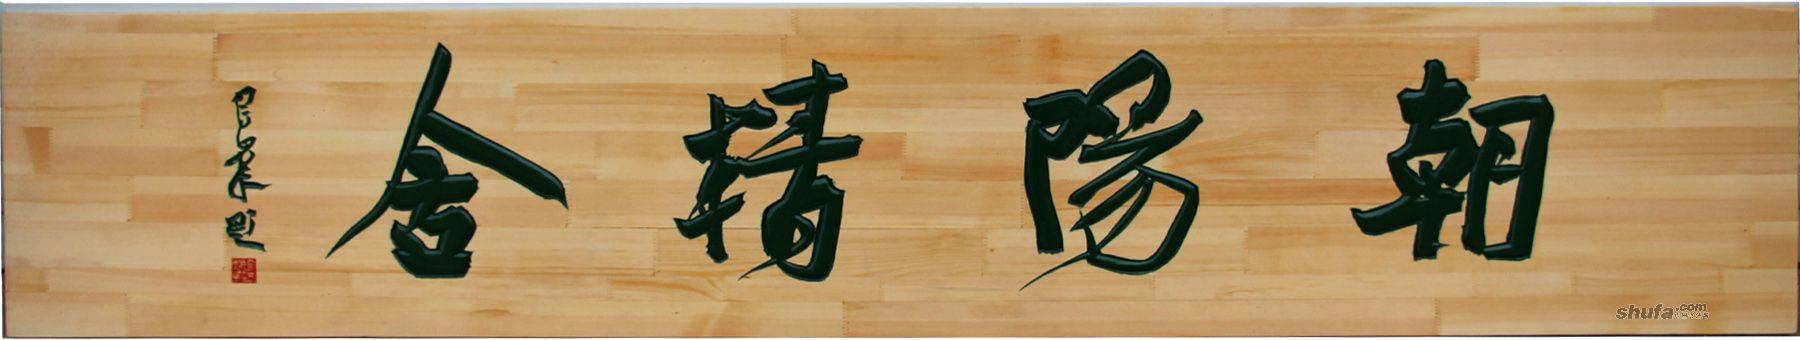 朝陽精舍
shufa.com